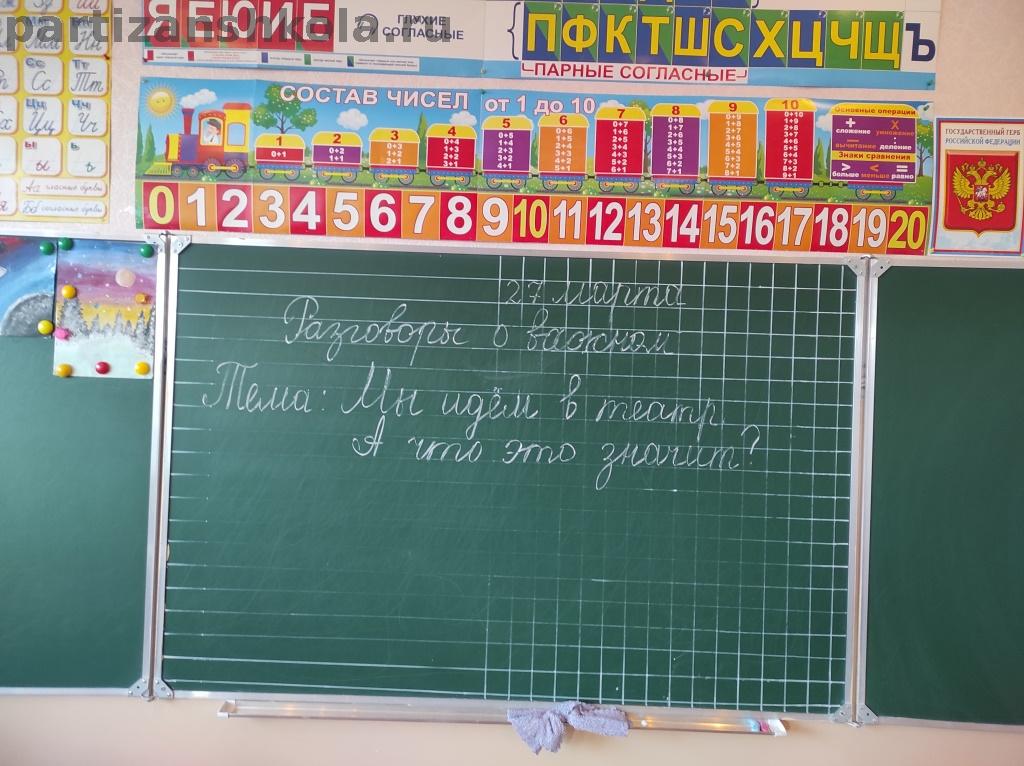 partizanshkola.ru
Я Е Ю И Ё
ГЛУХИЕ
СОГЛАСНЫЕ
П Ф К Т Ш С Х Ц Ч Щ Ъ
ПАРНЫЕ СОГЛАСНЫЕ
СОСТАВ ЧИСЕЛ от 1 до 10
1
0+1
2
0+2
1+1
3
0+3
1+2
2+1
4
0+4
1+3
2+2
3+1
5
0+5
1+4
2+3
3+2
4+1
6
0+6
1+5
2+4
3+3
4+2
5+1
7
0+7
1+6
2+5
3+4
4+3
5+2
6+1
8
0+8
1+7
2+6
3+5
4+4
5+3
6+2
7+1
9
0+9
1+8
2+7
3+6
4+5
5+4
6+3
7+2
8+1
10
0+10
1+9
2+8
3+7
4+6
5+5
6+4
7+3
8+2
9+1
Основные операции
+ х
сложение умножение
вычитание деление
Знаки сравнения
> < =
больше меньше равно
0 1 2 3 4 5 6 7 8 9 10 11 12 13 14 15 16 17 18 19 20
ГОСУДАРСТВЕННЫЙ ГЕРБ
РОССИЙСКОЙ ФЕДЕРАЦИИ
Сс Тт
Сс Тт
Цц Чч
Цц Чч
ы ь
ы ь
гласные буквы
согласные буквы
27 марта
Разговоры о важном
Тема: Мы идём в театр.
А что это значит?